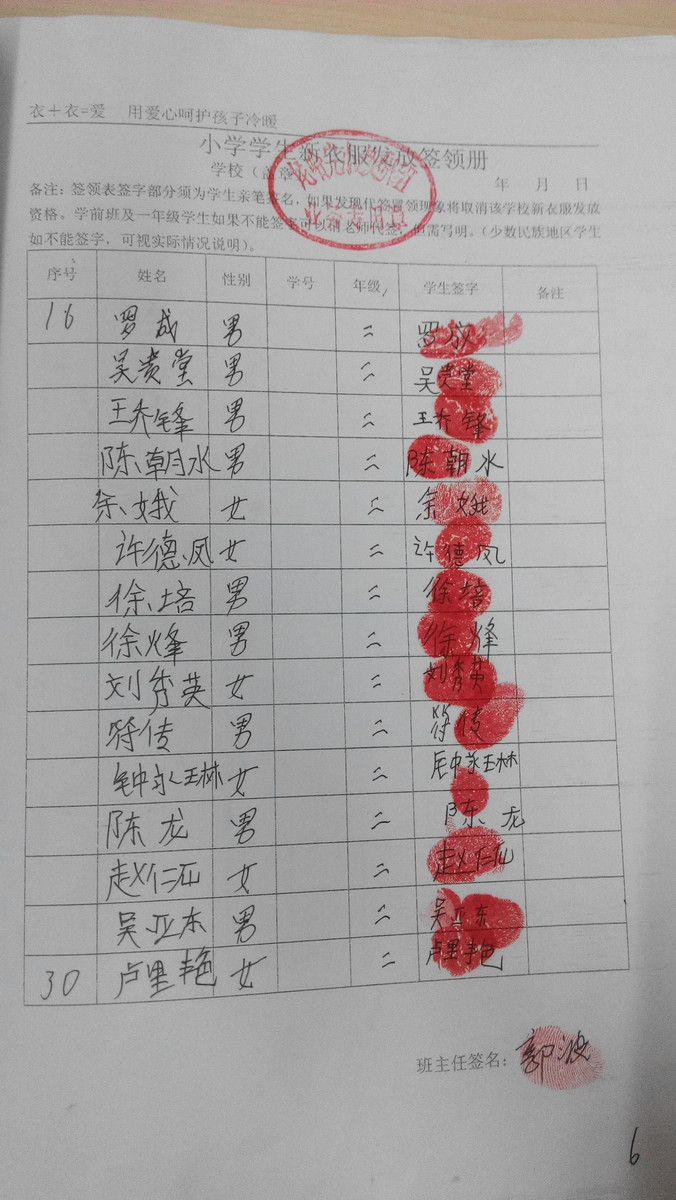 衣+衣=爱 用爱心呵护孩子冷暖
小学学生新衣服发放签领册
学校（盖章
年 月 日
备注：签领表签字部分须为学生亲笔签名，如果发现代签冒领现象将取消该学校新衣服发放
资格。学前班及一年级学生如果不能签字可以请老师代签，但需写明。（少数民族地区学生
如不能签字，可视实际情况说明）。
序号 姓名 性别 学号 年级 学生签字 备注
16 罗成 男 二 罗成
吴贵堂 男 二 吴贵堂
王乔锋 男 二 王乔锋
陈朝水 男 二 陈朝水
余娥 女 二 余娥
许德凤 女 二 许德凤
徐培 男 二 徐培
徐烽 男 二 徐烽
刘秀英 女 二 刘秀英
符传 男 二 符传
钟永琳 女 二 钟永琳
陈龙 男 二 陈龙
赵仁 女 二 赵仁
吴亚东 男 二 吴亚东
30 卢里艳 女 二 卢里艳
班主任签名：郭波
6